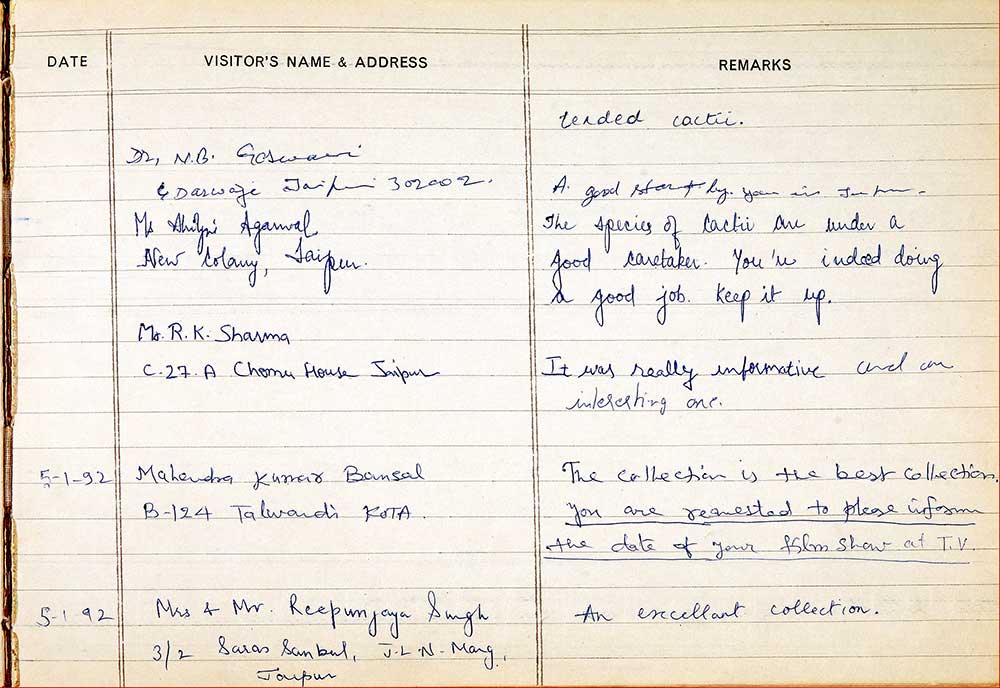 DATE VISITOR'S NAME & ADDRESS REMARKS
tended cactii.
Dr, N.B. Goswami
Jaipur 302002.
A good start by you in
Ms Agarwal
New Colony, Jaipur.
The species of Cactii are under a
good caretaker. You're indeed doing
a good job. Keep it up.
Mr. R.K. Sharma
C-27. A Chomu House Jaipur
It was really informative and an
interesting one.
5-1-92 Mahendra Kumar Bansal
B-124 Talwandi KOTA.
The collection is the best collection.
You are requested to please inform
the date of your film show at T.V.
5-1-92 Mrs & Mr. Reepunjaya Singh
3/2 Saras Sankul, J-L-N-Marg,
Jaipur
An excellant collection.